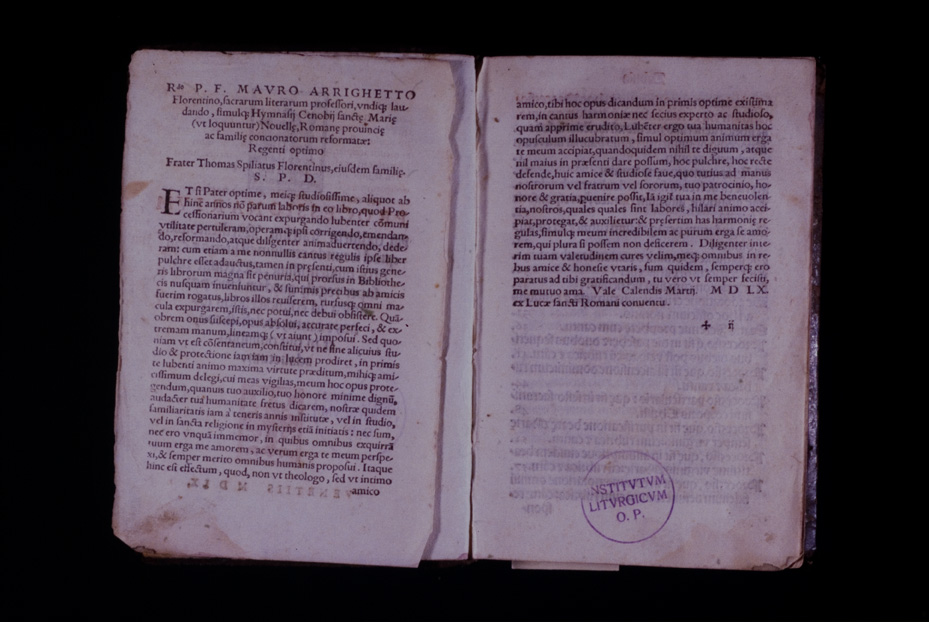 Rdo P. F. MAVRO ARRIGHETTO
Florentino, sacrarum literarum professori, vndiq; lau-
dando, simulq; Hymnasij Cenobij sanctę Marię
(vt loquuntur) Nouellę, Romanę prouincię
ac familię concionatorum reformatæ:
Regenti optimo
Frater Thomas Spiliatus Florentinus, eiusdem familię.
S. P. D.
ET si Pater optime, meiq; studiosissime, aliquot ab
hinc annos nō parum laboris in eo libro, quod Pro-
cessionarium vocant expurgando lubenter cōmuni
vtilitate pertuleram, operamq; ipsi corrigendo, emendan-
do, reformando, atque diligenter animaduertendo, dede
ram: cum etiam a me nonnullis cantus regulis ipse liber
pulchre esset adauctus, tamen in pręsenti, cum istius gene-
ris librorum magna sit penuria, qui prorsus in Bibliothe-
cis nusquam inueniuntur, & summis precibus ab amicis
fuerim rogatus, libros illos reuiserem, rursusq; omni ma-
cula expurgarem, istis, nec potui, nec debui obsistere. Quā-
obrem onus suscepi, opus absolui, accurate perfeci, & ex-
tremam manum, lineamq; (vt aiunt) imposui. Sed quo-
niam vt est cōsentaneum, constitui, vt ne sine alicuius stu-
dio & protectione iam iam in lucem prodiret, in primis
te lubenti animo maxima virtute præditum, mihiq; ami-
cissimum delegi, cui meas vigilias, meum hoc opus prote-
gendum, quanuis tuo auxilio, tuo honore minime dignū,
audacter tua humanitate fretus dicarem, nostræ quidem
familiaritatis iam a teneris annis institutæ, vel in studio,
vel in sancta religione in mysterijs etiā initiatis: nec sum,
nec ero vnquā immemor, in quibus omnibus exquirrā
tuum erga me amorem, ac verum erga te meum perspe-
xi, & semper merito omnibus humanis proposui. Itaque
hinc est effectum, quod, non vt theologo, sed vt intimo
amico
amico, tibi hoc opus dicandum in primis optime existima
rem, in cantus harmoniæ nec secius experto ac studioso,
quam apprime erudito. Lubēter ergo tua humanitas hoc
opusculum illucubratum, simul optimum animum erga
te meum accipiat, quandoquidem nihil te dignum, atque
nil maius in præsenti dare possum, hoc pulchre, hoc recte
defende, huic amice & studiose faue, quo tutius ad manus
nostrorum vel fratrum vel sororum, tuo patrocinio, ho-
nore & gratia, puenire possit. Iā igit tua in me beneuolen-
tia, nostros, quales quales sint labores, hilari animo acci-
piat, protegat, & auxilietur: & pręsertim has harmonię re-
gulas, simulq; meum incredibilem ac purum erga se amo-
rem, qui plura si possem non deficerem. Diligenter inte-
rim tuam valetudinem cures velim, meq; omnibus in re-
bus amice & honeste vtaris, sum quidem, semperq; ero
paratus ad tibi gratificandum, tu vero vt semper fecisti,
me mutuo ama. Vale Calendis Martij. M D LX.
ex Lucæ sancti Romani conuentu.
✠ ij
INSTITVTVM
LITVRGICVM
O. P.